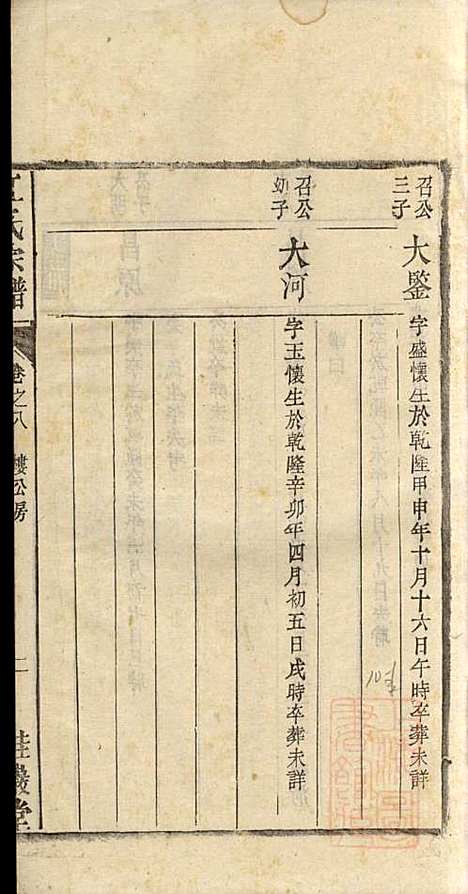 召公三子
大鋻
字盛懷生於乾隆甲申年十月十六日午時卒葬未詳
召公幼子
大河
字玉懷生於乾隆辛卯年四月初五日戌時卒葬未詳
氏宗譜
卷之八
樓公房
二
堂